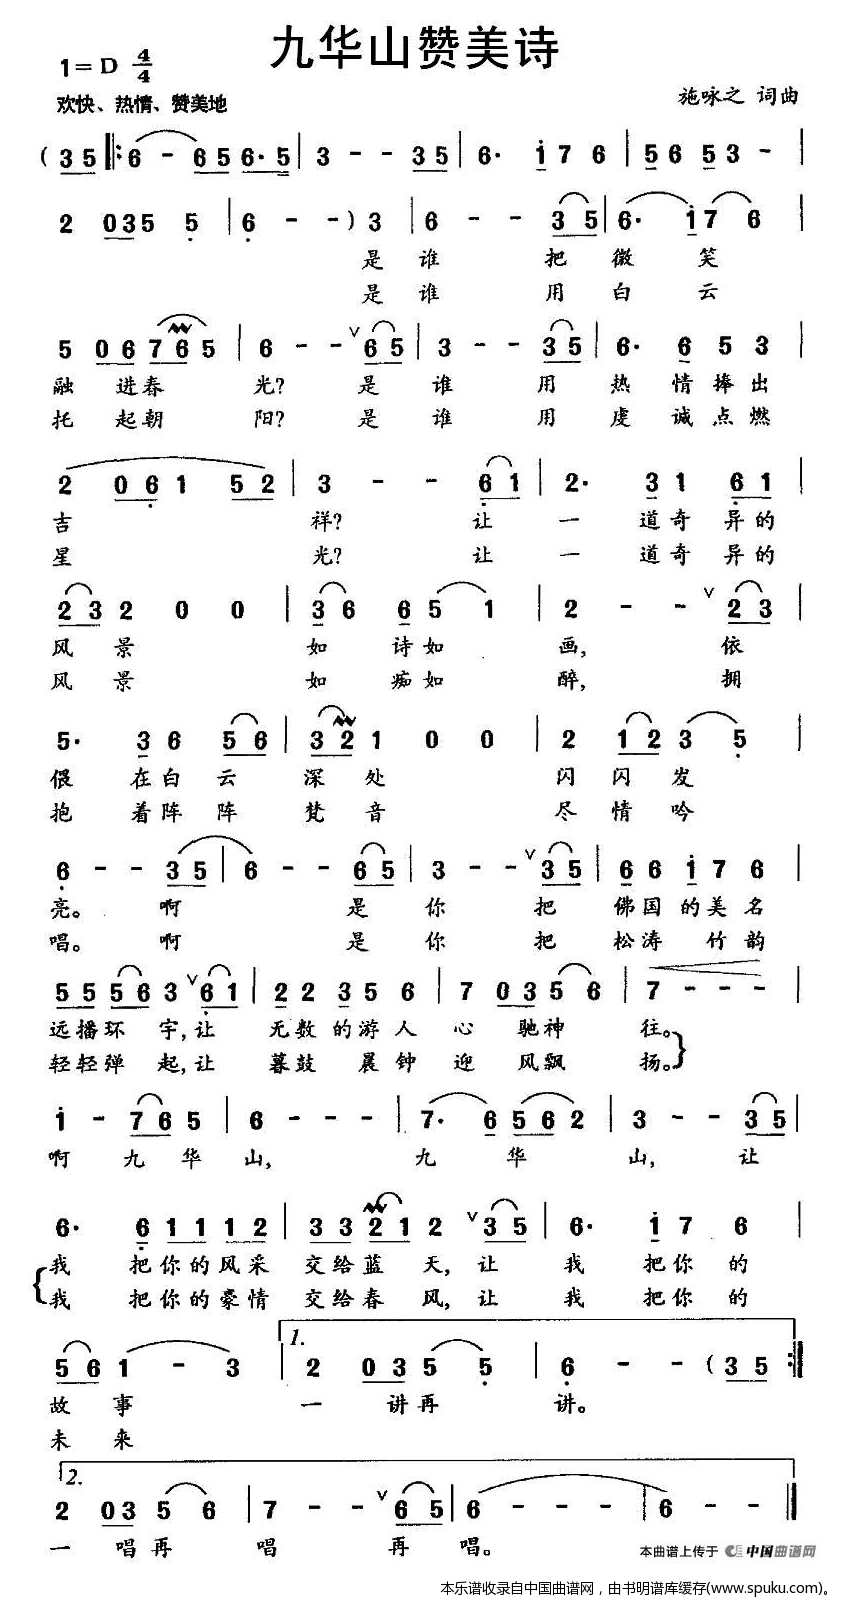 九华山赞美诗
1=D 4/4
欢快、热情、赞美地
施咏之 词曲
( 3 5 ‖: 6 - 6 5 6· 5 | 3 - - 3 5 | 6· i 7 6 | 5 6 5 3 - |
2 0 3 5 5 | 6 - - ) 3 | 6 - - 3 5 | 6· i 7 6 |
是 谁 把 微 笑
是 谁 用 白 云
5 0 6 7 6 5 | 6 - - ∨ 6 5 | 3 - - 3 5 | 6· 6 5 3 |
融 进 春 光? 是 谁 用 热 情 捧 出
托 起 朝 阳? 是 谁 用 虔 诚 点 燃
2 0 6 1 5 2 | 3 - - 6 1 | 2· 3 1 6 1 |
吉 祥? 让 一 道 奇 异 的
星 光? 让 一 道 奇 异 的
2 3 2 0 0 | 3 6 6 5 1 | 2 - - ∨ 2 3 |
风 景 如 诗 如 画, 依
风 景 如 痴 如 醉, 拥
5· 3 6 5 6 | 3 2 1 0 0 | 2 1 2 3 5 |
偎 在 白 云 深 处 闪 闪 发
抱 着 阵 阵 梵 音 尽 情 吟
6 - - 3 5 | 6 - - 6 5 | 3 - - ∨ 3 5 | 6 6 i 7 6 |
亮。 啊 是 你 把 佛 国 的 美 名
唱。 啊 是 你 把 松 涛 竹 韵
5 5 5 6 3 ∨ 6 1 | 2 2 3 5 6 | 7 0 3 5 6 | 7 - - - |
远 播 环 宇, 让 无 数 的 游 人 心 驰 神 往。
轻 轻 弹 起, 让 暮 鼓 晨 钟 迎 风 飘 扬。
i - 7 6 5 | 6 - - - | 7· 6 5 6 2 | 3 - - 3 5 |
啊 九 华 山, 九 华 山, 让
6· 6 1 1 1 2 | 3 3 2 1 2 ∨ 3 5 | 6· i 7 6 |
我 把 你 的 风 采 交 给 蓝 天, 让 我 把 你 的
我 把 你 的 豪 情 交 给 春 风, 让 我 把 你 的
1.
5 6 1 - 3 | 2 0 3 5 5 | 6 - - ( 3 5 :‖
故 事 一 讲 再 讲。
未 来
2.
2 0 3 5 6 | 7 - - ∨ 6 5 | 6 - - - | 6 - - ‖
一 唱 再 唱 再 唱。
本曲谱上传于 中国曲谱网
本乐谱收录自中国曲谱网，由书明谱库缓存(www.spuku.com)。